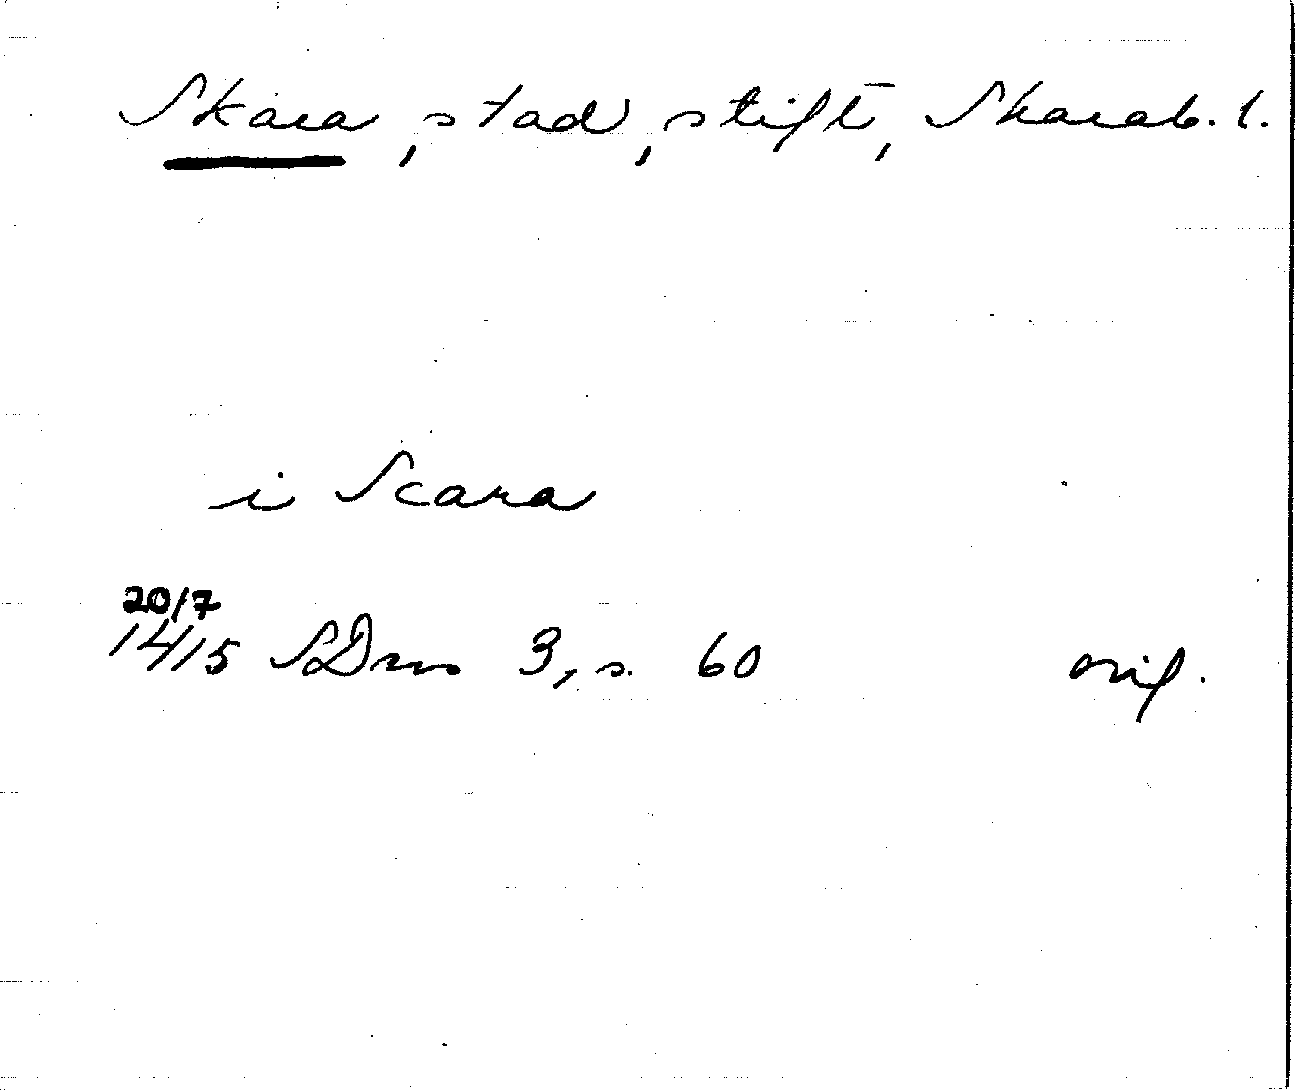 Skara, stad, stift, Skarab. l.
i Scara
20/7
1415 SDns 3, s. 60 orig.